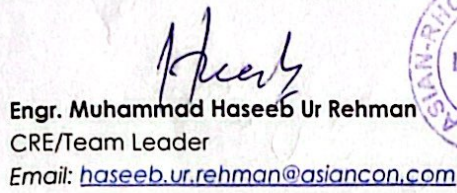 Engr. Muhammad Haseeb Ur Rehman
CRE/Team Leader
Email: haseeb.ur.rehman@asiancon.com
ASIAN-RHO